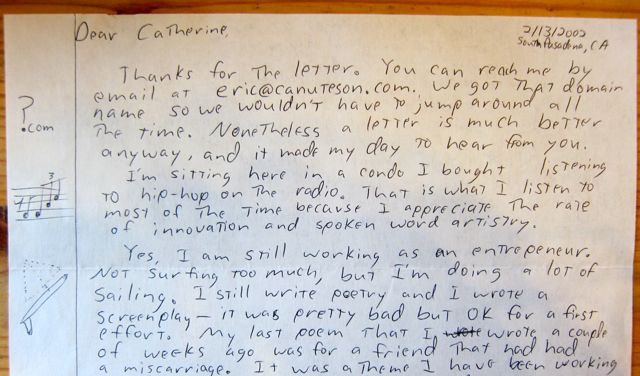 2/13/2002
South Pasadena, CA
Dear Catherine,
Thanks for the letter. You can reach me by
email at eric@canuteson.com. We got that domain
name so we wouldn't have to jump around all
the time. Nonetheless a letter is much better
anyway, and it made my day to hear from you.
I'm sitting here in a condo I bought listening
to hip-hop on the radio. That is what I listen to
most of the time because I appreciate the rate
of innovation and spoken word artistry.
Yes, I am still working as an entrepeneur.
Not surfing too much, but I'm doing a lot of
sailing. I still write poetry and I wrote a
screenplay – it was pretty bad but OK for a first
effort. My last poem that I wrote wrote a couple
of weeks ago was for a friend that had had
a miscarriage. It was a theme I have been working
?
.com
3